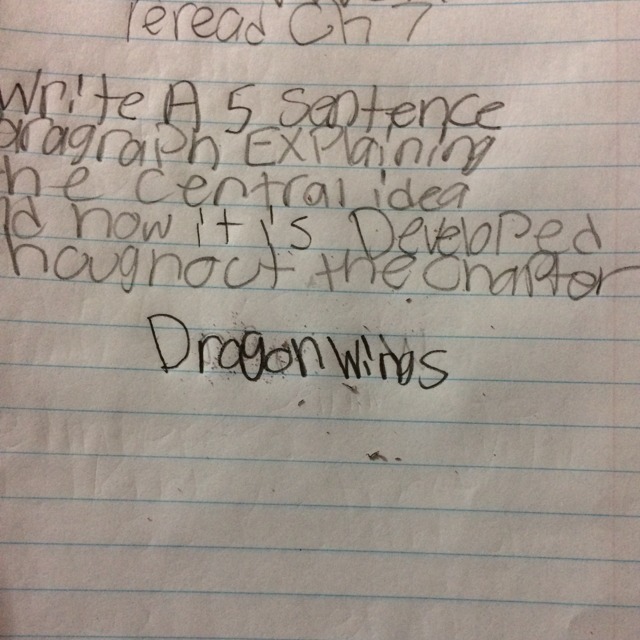 reread Ch 7
Write A 5 Sentence
aragraph Explaining
he central idea
d how it is Developed
hougnout the Chaptor
Dragonwings